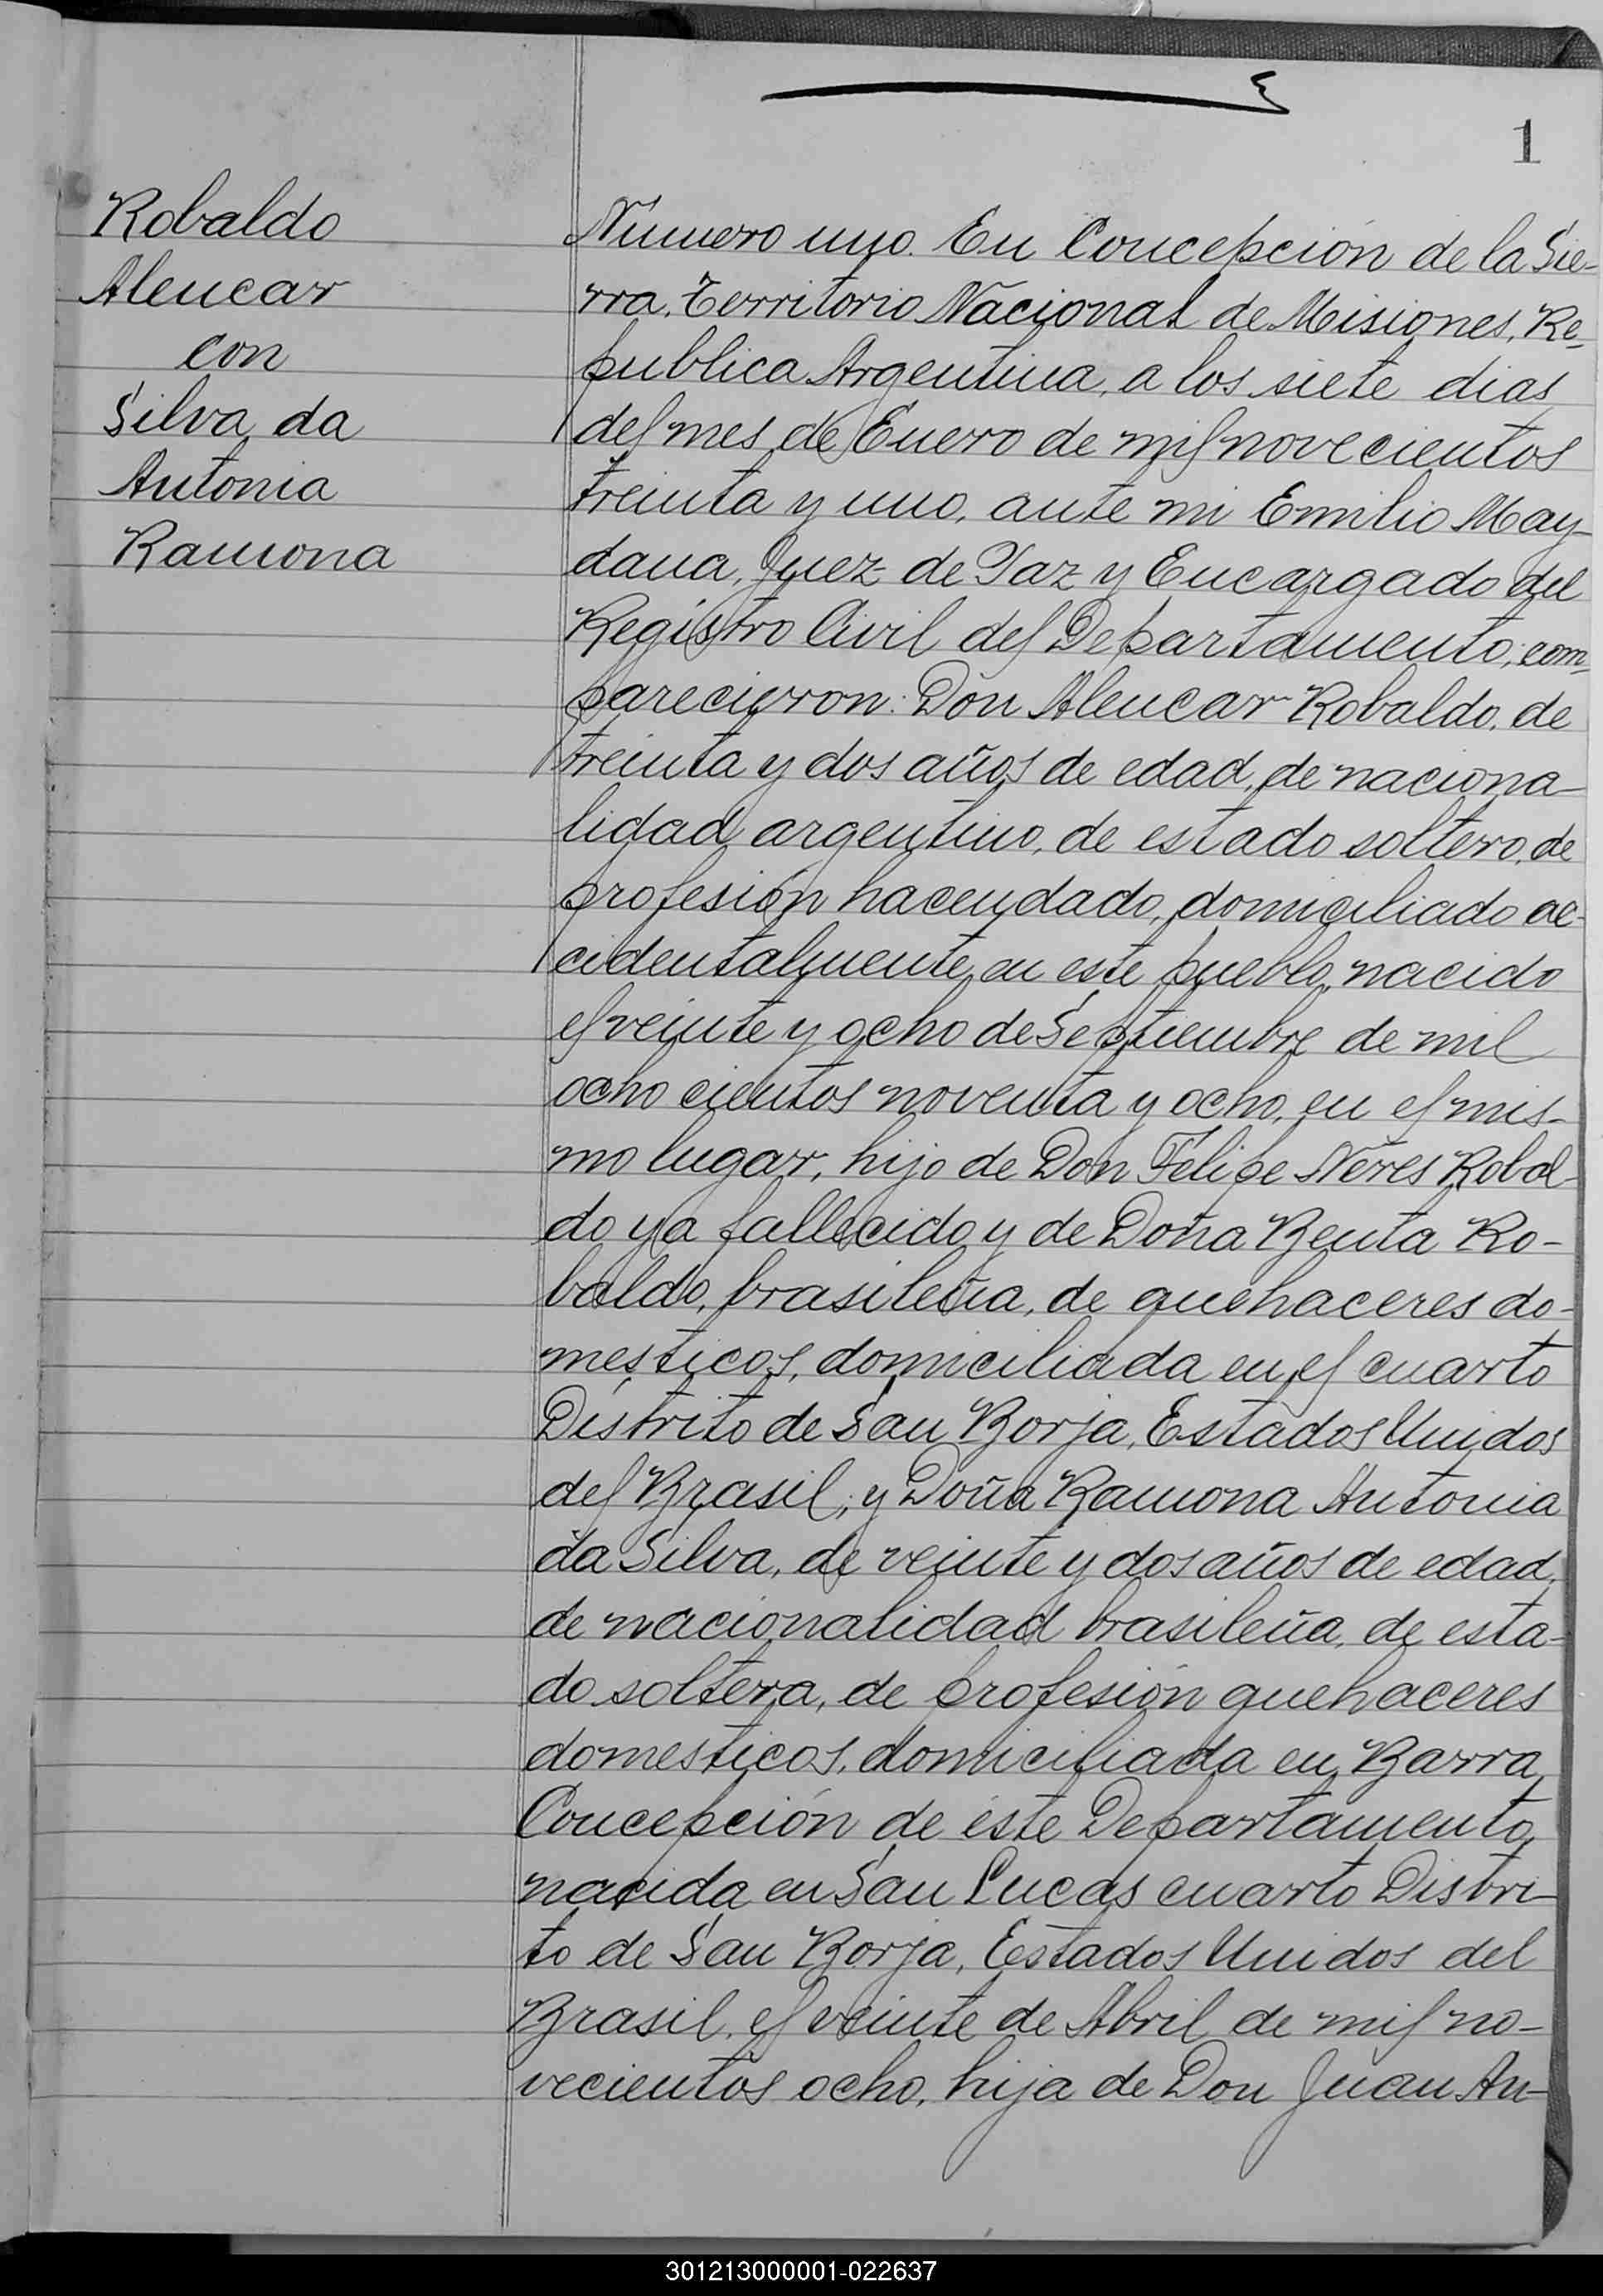 1
Robaldo
Alencar
con
Silva, da
Antonia
Ramona
Número uno. En Concepción de la Sie-
rra, Territorio Nacional de Misiones, Re-
publica Argentina, a los siete dias
del mes de Enero de mil novecientos
treinta y uno, ante mi Emilio May-
dana, Juez de Paz y Encargado del
Registro Civil del Departamento, com-
parecieron: Don Alencar Robaldo, de
treinta y dos años de edad, de naciona-
lidad argentino, de estado soltero, de
profesión hacendado, domiciliado ac-
cidentalmente en este pueblo, nacido
el veinte y ocho de Septiembre de mil
ocho cientos noventa y ocho, en el mis-
mo lugar, hijo de Don Felipe Neres Robal-
do ya fallecido y de Doña Benta Ro-
baldo, brasileña, de quehaceres do-
mesticos, domiciliada en el cuarto
Distrito de San Borja, Estados Unidos
del Brasil; y Doña Ramona Antonia
da Silva, de veinte y dos años de edad,
de nacionalidad brasileña, de esta-
do soltera, de profesión quehaceres
domesticos, domiciliada en Barra
Concepción de éste Departamento,
nacida en San Lucas cuarto Distri-
to de San Borja, Estados Unidos del
Brasil, el veinte de Abril de mil no-
vecientos ocho, hija de Don Juan An-
301213000001-022637